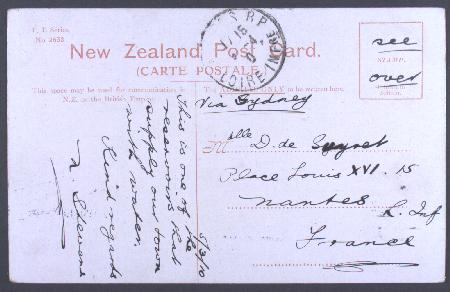 F. T. Series.
No 2653
New Zealand Post Card.
(CARTE POSTALE)
This space may be used for communication in
N.Z. or the British Empire
ONLY to be written here.
STAMP.
see
over
Via Sydney
Mlle D. de
Place Louis XVI. 15
Nantes
L. Inf
France
This is one of the
reservoirs that
supply our town
with water.
Kind regards
5/3/10